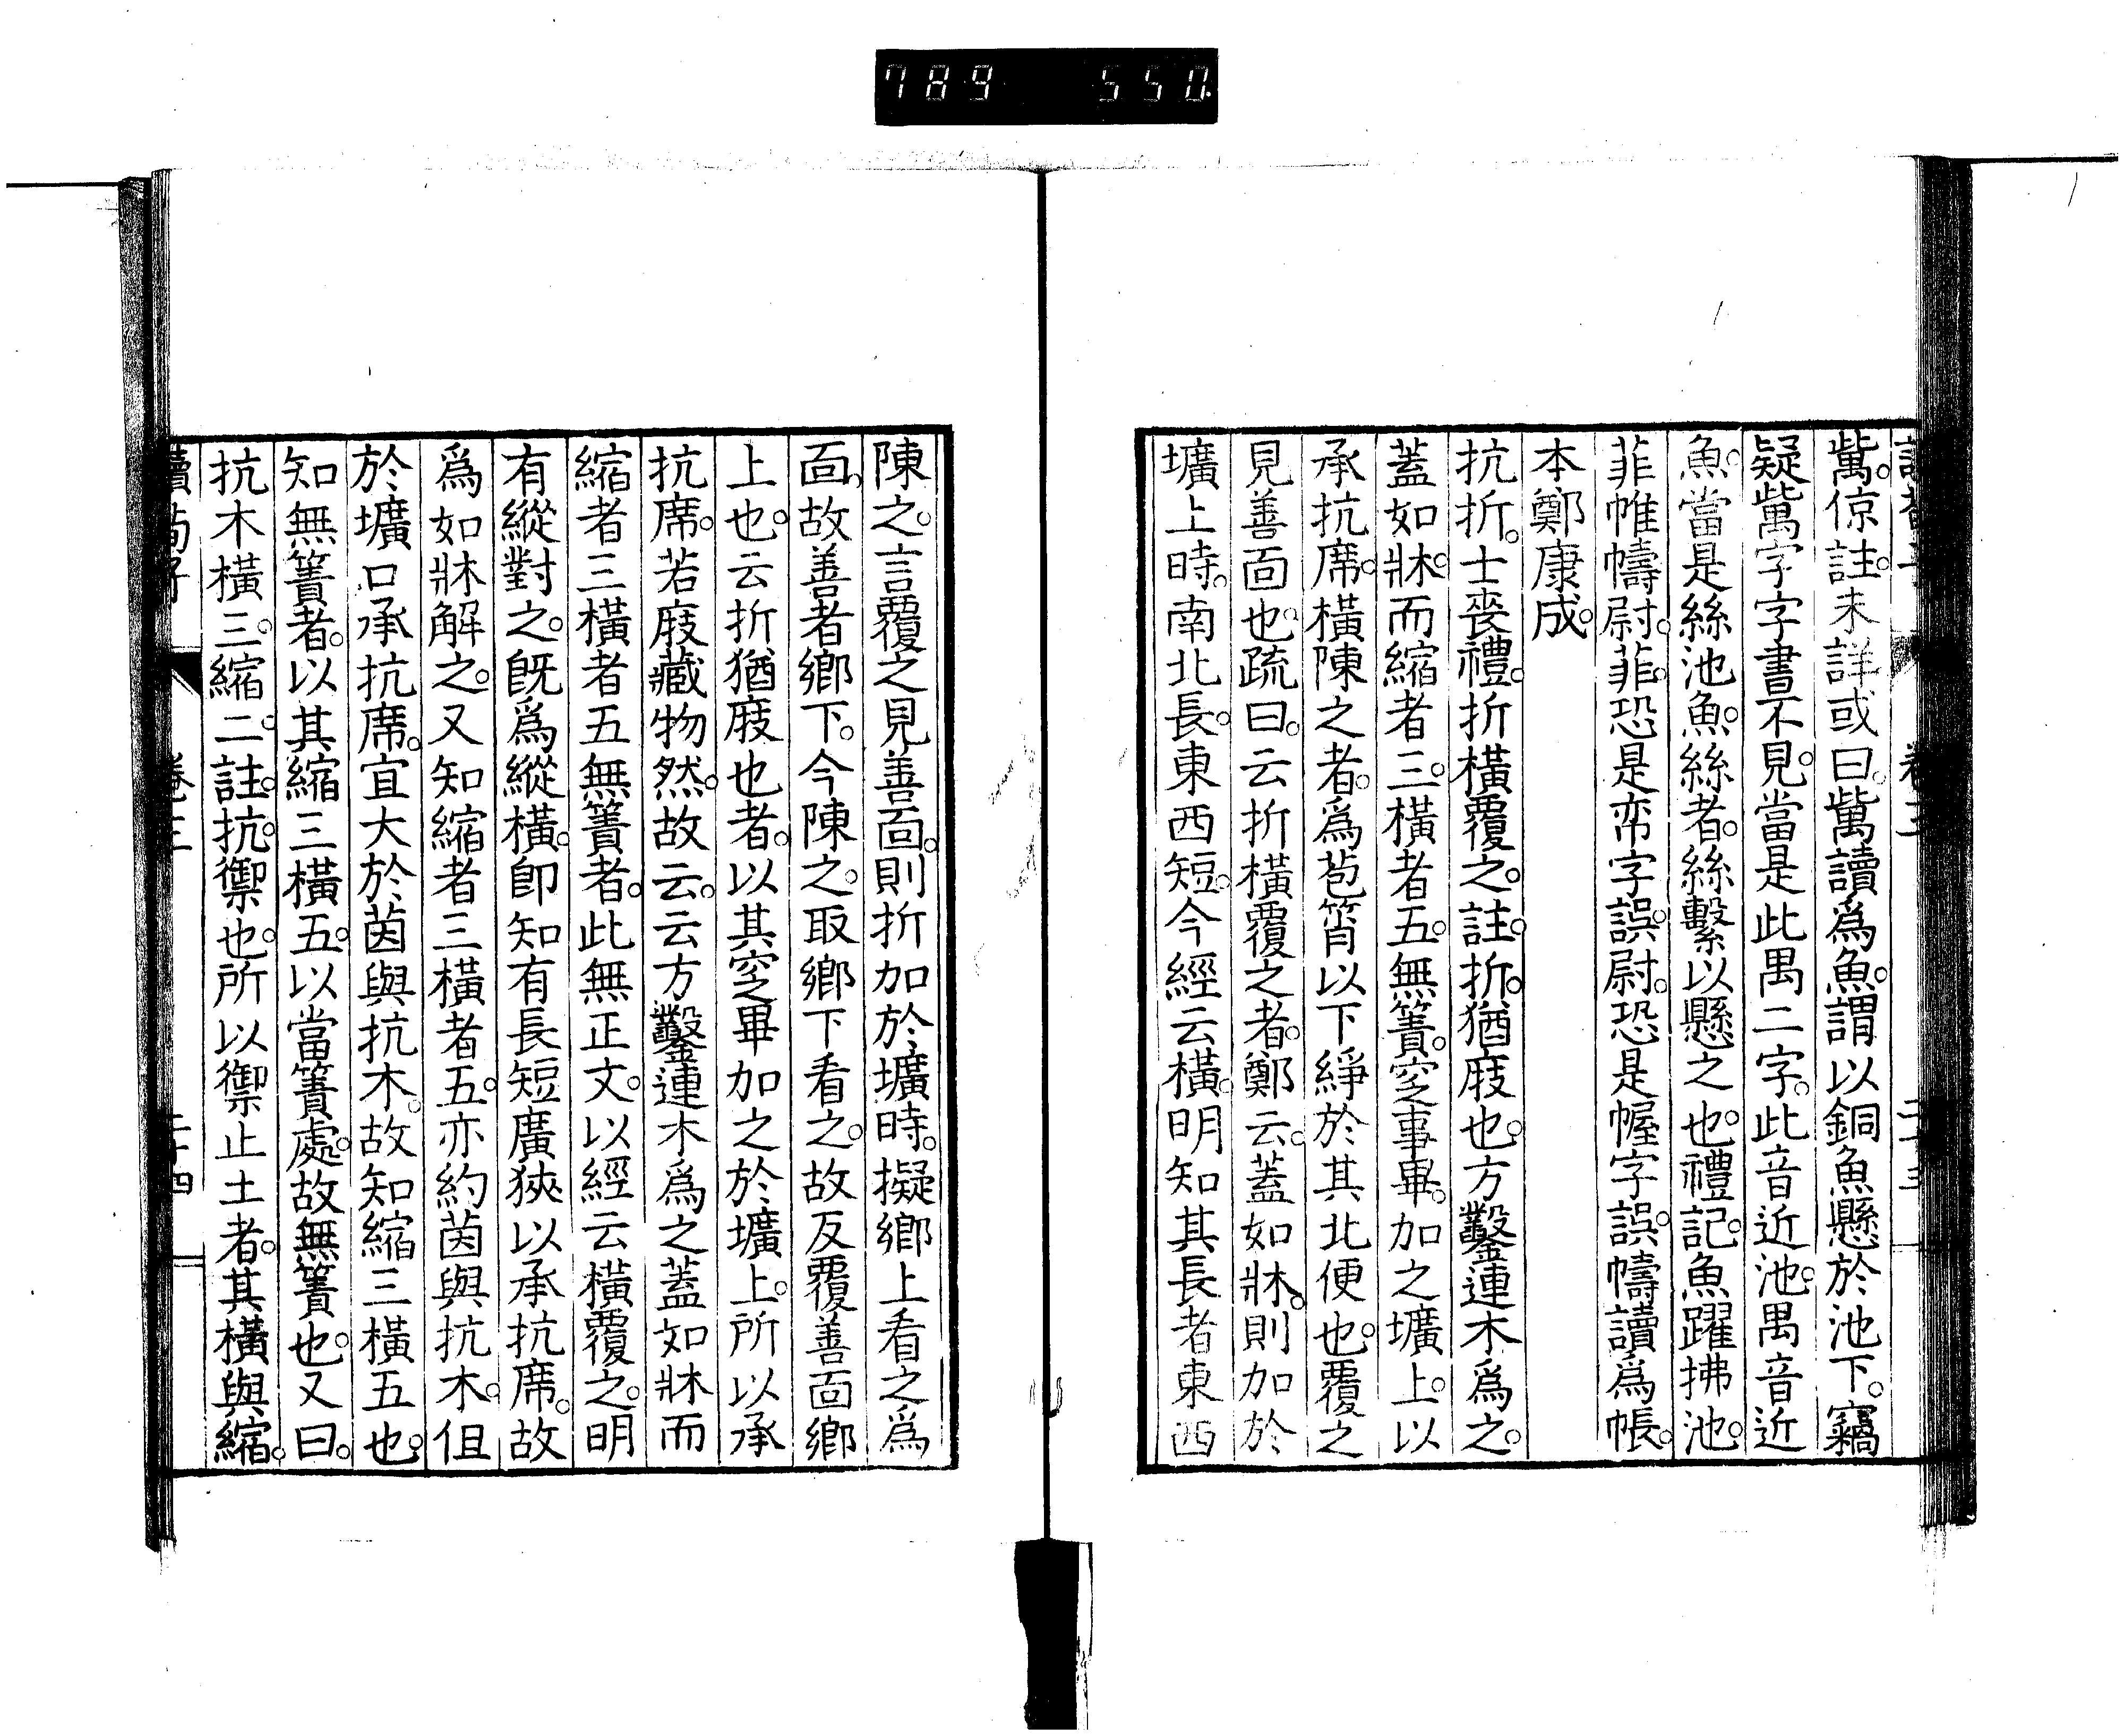 789 550
䰽。倞註。未詳或曰。䰽讀爲魚。謂以銅魚懸於池下。竊
疑䰽字字書不見。當是此禺二字。此音近池。禺音近
魚。當是絲池魚。絲者。絲繫以懸之也。禮記。魚躍拂池。
菲帷幬尉。菲。恐是帟字誤。尉。恐是幄字誤。幬讀爲帳。
本鄭康成。
抗折。士喪禮。折橫覆之。註。折。猶庪也。方鑿連木爲之。
蓋如牀。而縮者三。橫者五。無簀。窆事畢。加之壙上。以
承抗席。橫陳之者。爲苞筲以下綪於其北便也。覆之
見善面也。疏曰。云折橫覆之者。鄭云。蓋如牀。則加於
壙上時。南北長。東西短。今經云橫。明知其長者東西
陳之。言覆之見善面。則折加於壙時。擬鄉上看之爲
面。故善者鄉下。今陳之。取鄉下看之。故反覆善面鄉
上也。云折猶庪也者。以其窆畢加之於壙上。所以承
抗席。若庪藏物然。故云。云方鑿連木爲之蓋如牀而
縮者三橫者五無簀者。此無正文。以經云橫覆之。明
有縱對之。旣爲縱橫。卽知有長短廣狹以承抗席。故
爲如牀解之。又知縮者三橫者五。亦約茵與抗木。但
於壙口承抗席。宜大於茵與抗木。故知縮三橫五也。
知無簀者。以其縮三橫五。以當簀處。故無簀也。又曰。
抗木橫三。縮二。註。抗。禦也。所以禦止土者。其橫與縮。
讀荀子 卷三 二十四